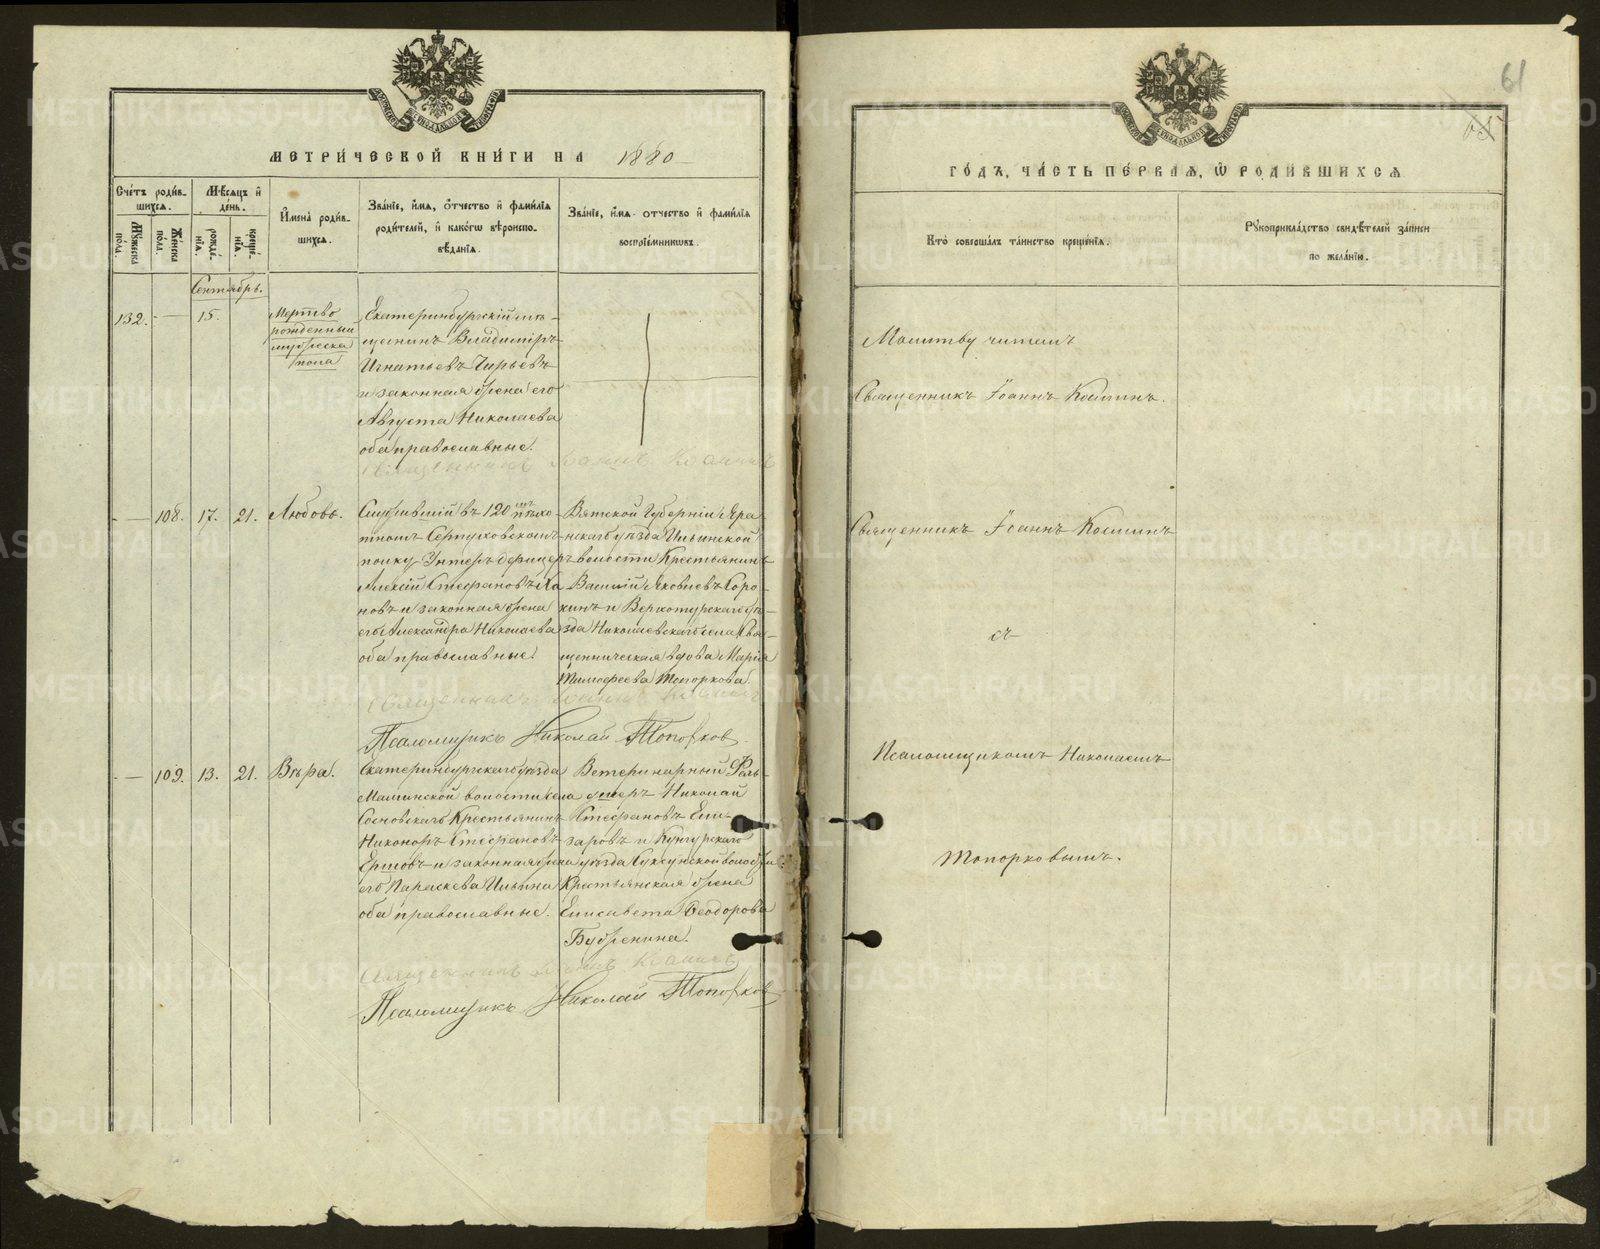 МЕТРИ́ЧЕСКОЙ КНИ́ГИ НА 1880
Сче́тъ роди́в-
шихся.
Му́жеска
по́ла.
Же́нска
по́ла.
Мѣ́сяцъ и
де́нь.
рожде́-
нїя.
креще́-
нїя.
И҆мена̀ роди́в-
шихся.
Зва́нїе, и҆́мя, ѻ҆́тчество и фами́лїя
роди́телей, и како́гѡ вѣроиспо-
вѣ́данїя.
Зва́нїе, и҆́мя, ѻ҆́тчество и фами́лїя
воспрїе́мниковъ.
Сентябрь.
132. — 15.
Мертво
рожденный
мужеска
пола
Екатеринбургскій мѣ-
щанинъ Владиміръ
Игнатьевъ Чирьевъ
и законная жена его
Августа Николаева
оба православные.
— 108. 17. 21. Любовь.
Служившій въ 120мъ пѣхо-
тномъ Серпуховскомъ
полку Унтеръ Офицеръ
Алексій Стефановъ
и законная жена
его Александра Николаева
оба православные.
Вятской Губерніи Яра-
нскаго уѣзда Ильинской
волости Крестьянинъ
Василій Яковлевъ Соро-
кинъ и Верхотурскаго уѣ-
зда Николаевскаго села Свя-
щенническая вдова Марія
Тимофеева Топоркова.
Псаломщикъ Николай Топорков
— 109. 13. 21. Вѣра.
Екатеринбургскаго уѣзда
Маминской волости села
Сосновскаго Крестьянинъ
Никоноръ Стефановъ
Ершовъ и законная жена
его Параскева Ильина
оба православные.
Ветеринарный Фель-
дшеръ Николай
Стефановъ Ели-
заровъ и Кунгурскаго
уѣзда Суксунской волости
Крестьянская жена
Елисавета Феодорова
Псаломщикъ Николай Топорков
61
65
ГО́ДЪ, ЧА́СТЬ ПЕ́РВАЯ, Ѡ҆ РОДИ́ВШИХСЯ
Кто̀ соверша́лъ та́инство креще́нїя.
Рꙋкоприкла́дство свидѣ́телей за́писи
по жела́нїю.
Молитву читалъ
Священникъ Іоаннъ Кошинъ.
Священникъ Іоаннъ Кошинъ
съ
Псаломщикомъ Николаемъ
Топорковымъ.
METRIKI.GASO-URAL.RU